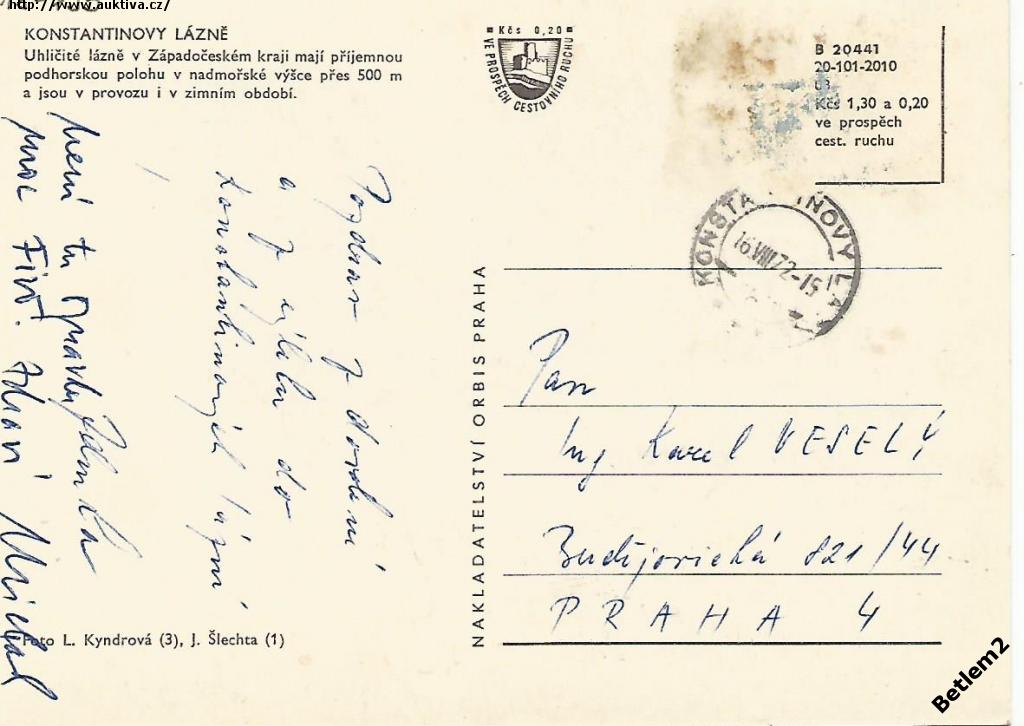 http://www.auktiva.cz/
KONSTANTINOVY LÁZNĚ
Uhličité lázně v Západočeském kraji mají příjemnou
podhorskou polohu v nadmořské výšce přes 500 m
a jsou v provozu i v zimním období.
Kčs 0,20
VE PROSPĚCH CESTOVNÍHO RUCHU
B 20441
20-101-2010
Kčs 1,30 a 0,20
ve prospěch
cest. ruchu
KONSTA INOVY LÁ
16.VIII.72-15
Pozdrav z
a z výletu do
Konstantinových Lázní
není tu
moc Zdraví Michal
NAKLADATELSTVÍ ORBIS PRAHA
Pan
Ing Karel VESELÝ
Budějovická 821/44
PRAHA 4
Foto L. Kyndrová (3), J. Šlechta (1)
Betlem2